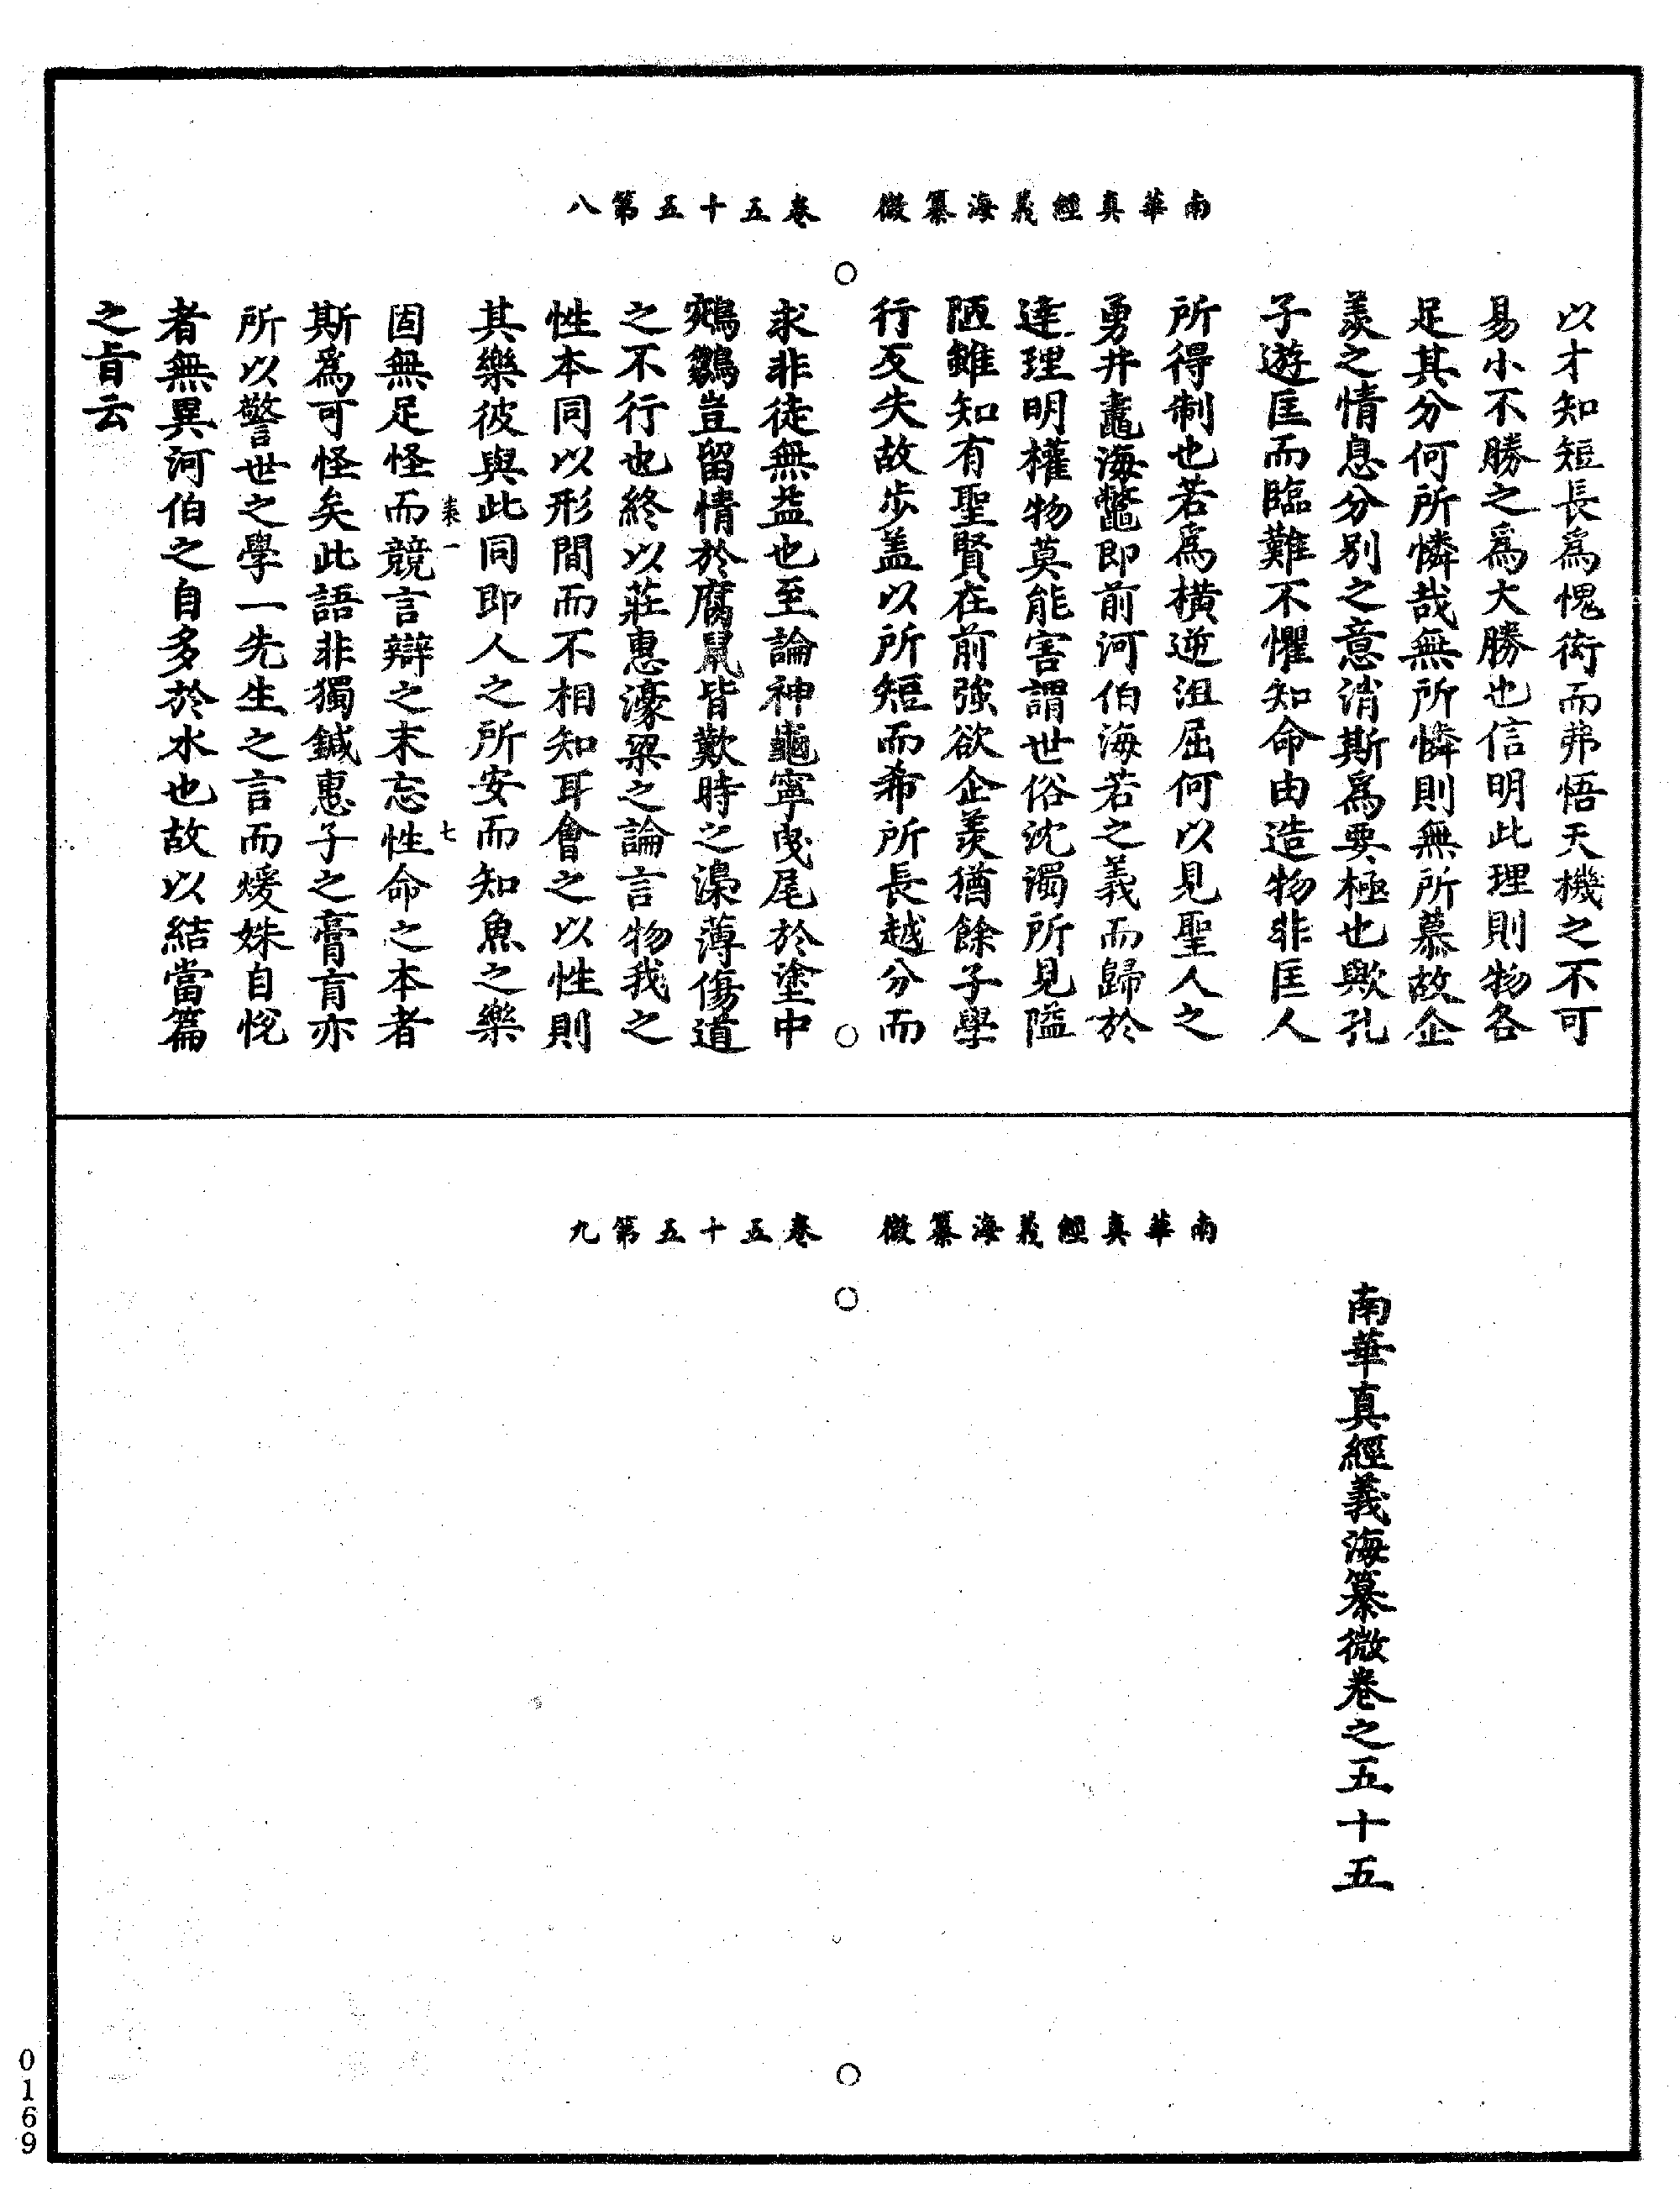 南華真經義海纂微　卷五十五第八
以才知短長爲愧衒而弗悟天機之不可
易小不勝之爲大勝也信明此理則物各
足其分何所憐哉無所憐則無所慕故企
羨之情息分别之意消斯爲要極也歟孔
子遊匡而臨難不懼知命由造物非匡人
所得制也若爲横逆沮屈何以見聖人之
勇井鼃海鼈即前河伯海若之義而歸於
達理明權物莫能害謂世俗沈濁所見隘
陋雖知有聖賢在前強欲企羨猶餘子學
行反失故步盖以所短而希所長越分而
求非徒無益也至論神龜寧曳尾於塗中
鵷鶵豈留情於腐鼠皆歎時之澆薄傷道
之不行也終以莊惠濠梁之論言物我之
性本同以形間而不相知耳會之以性則
其樂彼與此同即人之所安而知魚之樂
固無足怪而競言辯之末忘性命之本者
斯爲可怪矣此語非獨鍼惠子之膏肓亦
所以警世之學一先生之言而煖姝自悅
者無異河伯之自多於水也故以結當篇
之旨云
南華真經義海纂微　卷五十五第九
南華真經義海纂微卷之五十五
0169